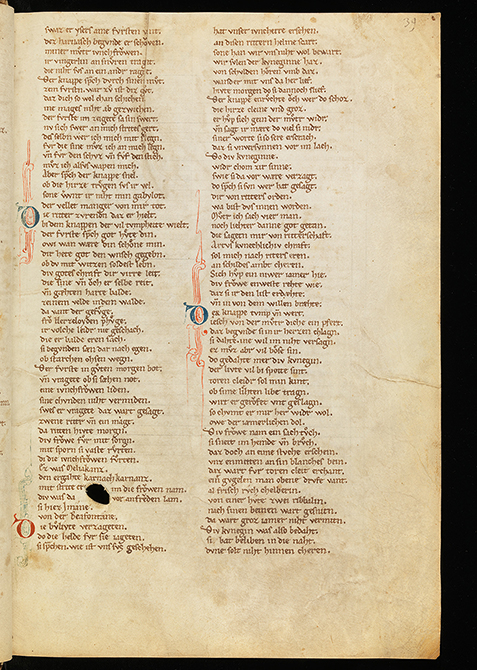 39
swaz er ysers ame fvrsten vant.
dez harnasch begvnde er schowen.
miner mvter ivnchfröwen.
ir vingerlin an snvren tragent.
die niht svs an ein ander ragent.
Der knappe sprach dvrch sinen mvt.
zem fvrsten. war zv ist diz gvt.
daz dich so wol chan schichen.
ine mages niht ab gezwichen.
der fvrste im zeigte sa sin swert.
nv sich swer an mich strites gert.
des selben wer ich mich mit slegn.
fvr die sine mvz ich an mich legn.
vn fvr den schvz vn fvr den stich.
mvz ich alsvs wapen mich.
aber sprach der knappe snel.
ob die hirze trvgen svs ir vel.
sone wunt ir niht min gabylot.
der vellet manger von mir tot.
Die ritter zvrenden daz er hielt.
bi dem knappen der vil tvmpheite wielt.
der fvrste sprach got hvte din.
owi wan wære din schöne min.
dir hete got den wnsch gegebn.
ob dv mit witzen soldest lebn.
div gotes chraft dir virre leit.
die sine vn öch er selbe reit.
vn gahten harte balde.
zeinem velde in dem walde.
da vant der gefvge.
frö herzeloyden pflvge.
ir volche leider nie geschach.
die er balde eren sach.
si begvnden sæn dar nach egen.
ob starchen ohsen wegen.
Der fvrste in gvten morgen bot.
vn vragete ob si sæhen not.
eine ivnchfröwen liden.
sine chvnden niht vermiden.
swes er vragete daz wart gesagt.
zwene ritter vn ein magt.
da riten hivte morgen.
div fröwe fvr mit sorgn.
mit sporn si vaste rvrten.
di die ivnchfröwen fvrten.
Ez was Meliakanz.
den ergahte karnachkarnanz.
mit strite er im die fröwen nam.
div was da vor an freden lam.
si hiez Imane.
von der Beafontane.
Die bvlivte verzageten.
do die helde fvr sie iageten.
si sprachen. wie ist vns svs geschehen.
hat vnser ivncherre ersehen.
an disen rittern helme scart.
sone han wir vns niht wol bewart.
wir svlen der kvneginne haz.
von schvlden hören vmb daz.
wande er mit vns da her lief.
hivte morgen do si dannoch slief.
Der knappe enrvhte öch wer do schoz.
die hirze cleine vnd groz.
er hvp sich gein der mvter wider.
vn sagt ir mære do viel si nider.
siner worte si so sere erschrach.
daz si vnversvnnen vor im lach.
Do div kvneginne.
wider chom zir sinne.
swie si da vor wære verzagt.
do sprach si svn wer hat gesagt.
dir von ritters orden.
wa bist dvs innen worden.
Mvter ich sach vier man.
noch liehter danne got getan.
die sagten mir von ritterschaft.
Artvs kvneclichiv chraft.
sol mich nach riters eren.
an schildes ambt cheren.
Sich hvp ein niwer iamer hie.
div fröwe enweste rehte wie.
daz si ir den list erdæhte.
vn in von dem willen bræhte.
Der knappe tvmp vn wert.
iesch von der mvter diche ein pfert.
daz begvnde si in ir herzen chlagn.
si dahte. ine wil im niht versagn.
ez mvz aber vil böse sin.
do gedahte mer div kvnegin.
der livte vil bi spotte sint.
toren cleider sol min kint.
ob sime liehten libe tragn.
wirt er geröfet vnd geslagn.
so chvmt er mir her wider wol.
owe der iamerlichen dol.
Div fröwe nam ein sachtvch.
si sneit im hemde vn brvch.
daz doch an eine stvche erschein.
vnz enmitten an sin blanchez bein.
daz wart fvr toren cleit erchant.
ein gvgelen man obene drvfe vant.
al frisch rvch chelberin.
von einer hvte zwei ribbalin.
nach sinen beinen wart gesniten.
da wart groz iamer niht vermiten.
Div kvnegin was also bedaht.
si bat beliben in die naht.
dvne solt niht hinnen cheren.